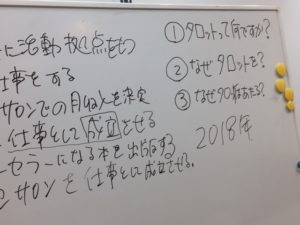 に活動拠点をもつ
仕事をする
サロンでの月
仕事として成立させる
セラーになる本を出版する
サロンを仕事として成立させる。
① タロットって何ですか?
② なぜタロットを?
③ なぜ
2018年